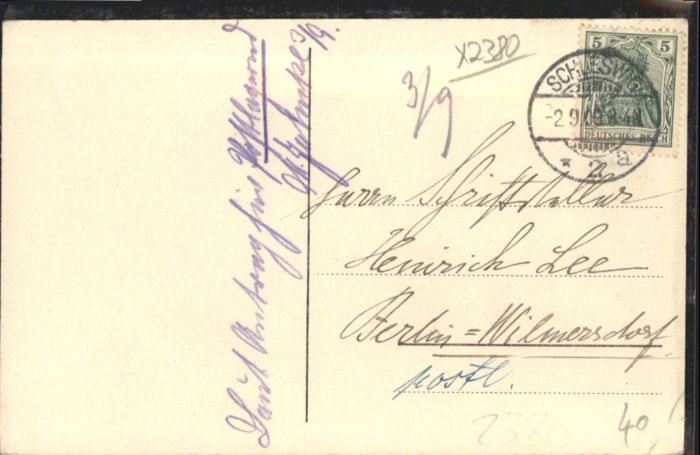 Laut Antrag hier Postlagernd
3/9.
3/9
X2380
5 5
DEUTSCHES REICH
SCHLESWIG
-2.9.09.3-4N
* 2 a
Herrn Schriftsteller
Heinrich Lee
Berlin=Wilmersdorf
postl.
2380
40